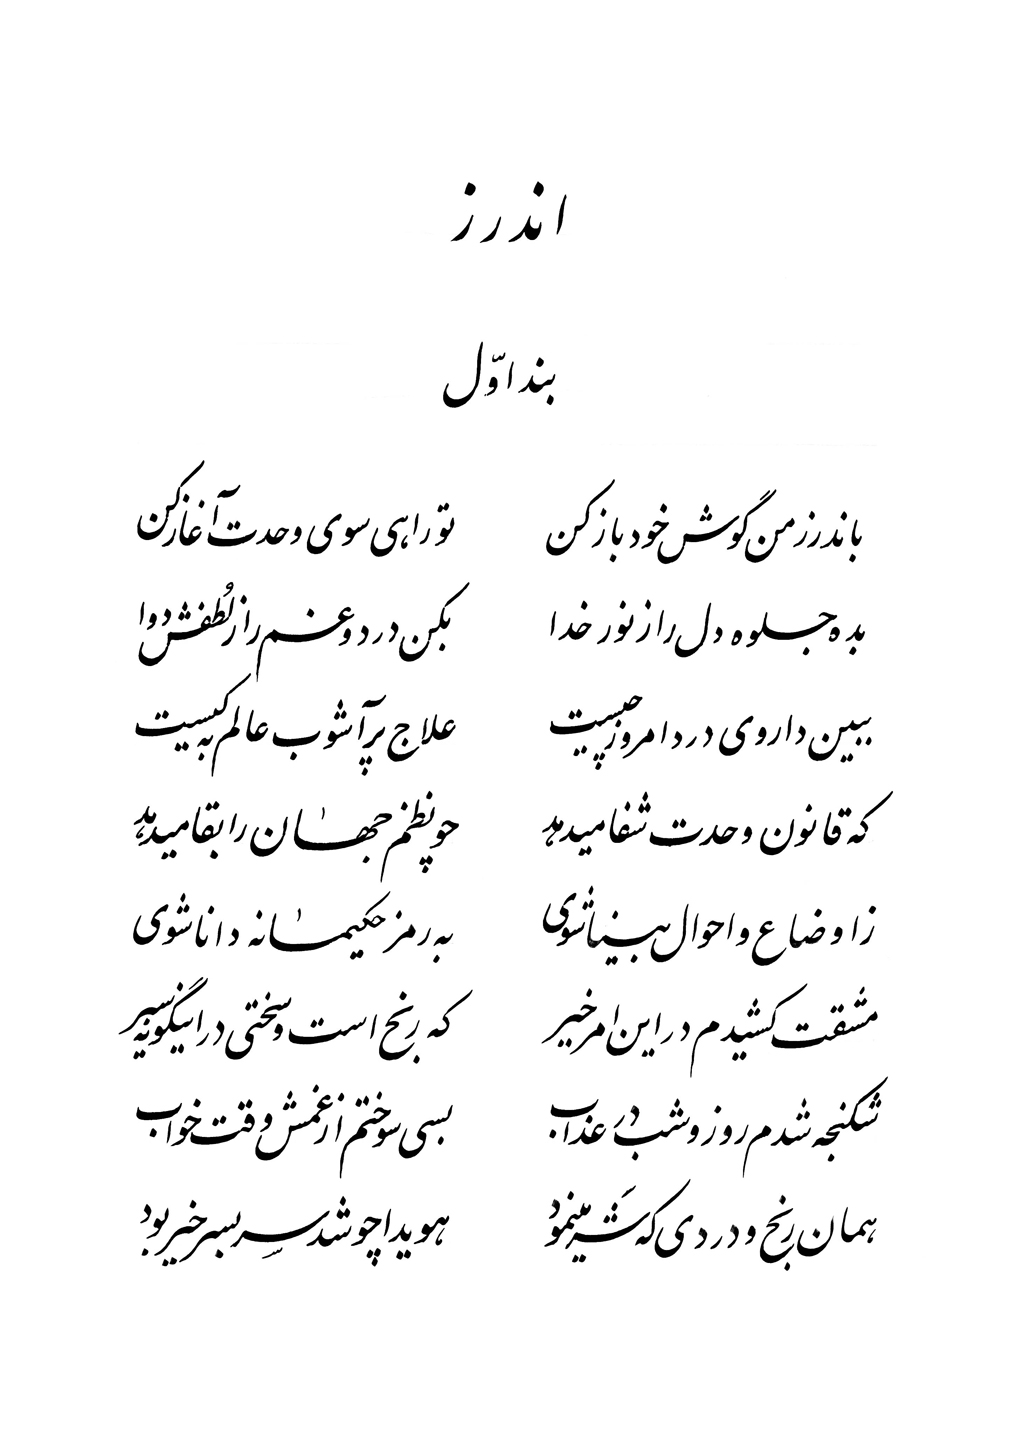 اندرز
بند اوّل
باندرز من گوش خود باز کن تو راهی سوی وحدت آغاز کن
بده جلوه دل را ز نور خدا بکن درد و غم را ز لُطفش دوا
ببین داروی درد امروز چیست علاج پرآشوب عالم به کیست
که قانون وحدت شفا میدهد چو نظم جهان را بقا میدهد
ز اوضاع و احوال بینا شوی به رمز حکیمانه دانا شوی
مشقت کشیدم در این امر خیر که رنج است و سختی در اینگونه سیر
شکنجه شدم روز و شب در عذاب بسی سوختم از غمش وقت خواب
همان رنج و دردی که شَر مینمود هویدا چو شد سِر بسر خیر بود